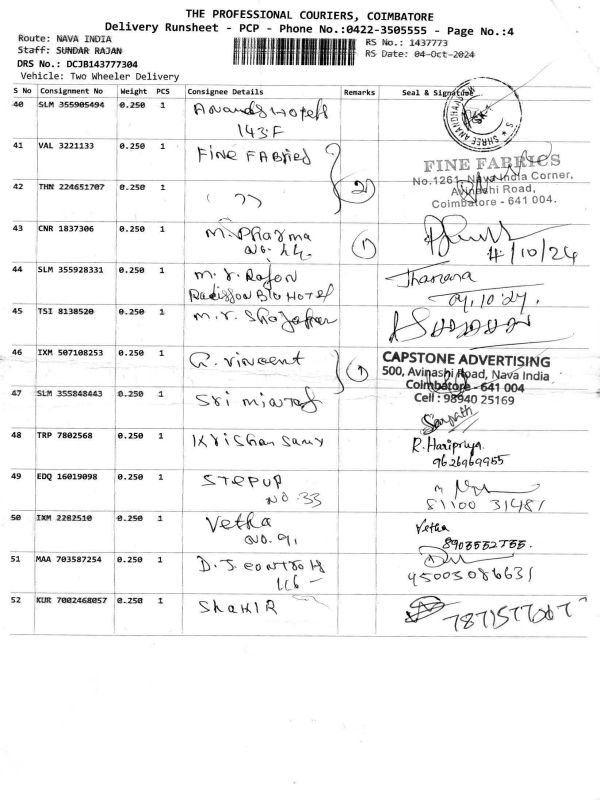 THE PROFESSIONAL COURIERS, COIMBATORE
Delivery Runsheet - PCP - Phone No.:0422-3505555 - Page No.:4
Route: NAVA INDIA
RS No.: 1437773
Staff: SUNDAR RAJAN
RS Date: 04-Oct-2024
DRS No.: DCJB143777304
Vehicle: Two Wheeler Delivery
S No Consignment No Weight PCS Consignee Details Remarks Seal & Signature
40 SLM 355905494 0.250 1
143F
SHREE ANANDHAAS
41 VAL 3221133 0.250 1 FINE FABRIES
FINE FABRICS
No.1261, Nava India Corner,
Avinashi Road,
Coimbatore - 641 004.
42 THN 224651707 0.250 1 " 2
43 CNR 1837306 0.250 1 M. Pharma 1
No. 44.
4/10/24
44 SLM 355928331 0.250 1 M.r. Rajon
Radisson Blu Hotel
04.10.24.
45 TSI 8138520 0.250 1 M.r.
46 IXM 507108253 0.250 1 G. Vincent 1
CAPSTONE ADVERTISING
500, Avinashi Road, Nava India
Coimbatore - 641 004
Cell : 98940 25169
47 SLM 355848443 0.250 1 Sri
Sampath
48 TRP 7802568 0.250 1 Krishan Samy R. Haripriya.
9626969955
49 EDQ 16019098 0.250 1 STEPUP
NO. 33
81100 31481
50 IXM 2282510 0.250 1 Vetha Vetha
NO. 91
8903552755.
51 MAA 703587254 0.250 1 D.J.
116 -
95003086631
52 KUR 7002468057 0.250 1 SHAKIR